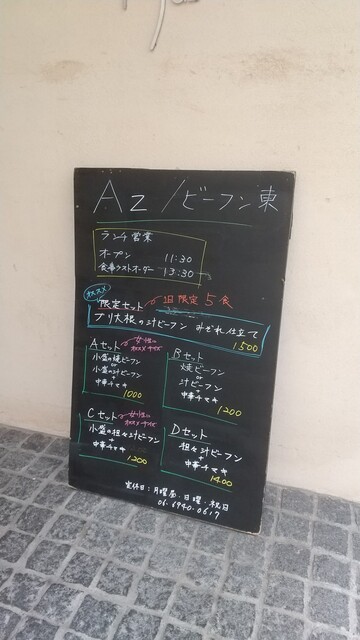 Az/ビーフン東
ランチ営業
オープン 11:30
食事ラストオーダー 13:30
オススメ
限定セット 1日限定5食
ブリ大根の汁ビーフン みぞれ仕立て
1500
Aセット 女性にオススメサイズ
小盛の焼ビーフン
or
小盛の汁ビーフン
+
中華チマキ
1000
Bセット
焼ビーフン
or
汁ビーフン
+
中華チマキ
1200
Cセット 女性にオススメサイズ
小盛の担々汁ビーフン
+
中華チマキ
1200
Dセット
担々汁ビーフン
+
中華チマキ
1400
定休日:月曜昼・日曜・祝日
06.6940.0617